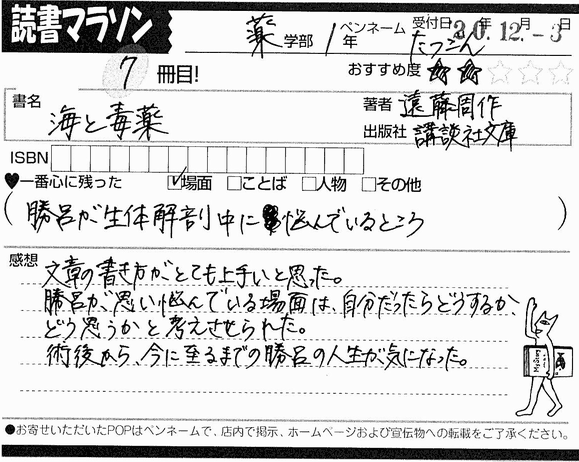 読書マラソン
薬学部 1年 ペンネーム たつこん 受付日 20年12月-3日
7冊目!
おすすめ度 ★★☆☆☆
書名 海と毒薬
著者 遠藤周作
出版社 講談社文庫
ISBN
♥一番心に残った ☑場面 □ことば □人物 □その他
(勝呂が生体解剖中に悩んでいるところ)
感想
文章の書き方がとても上手いと思った。
勝呂が、思い悩んでいる場面は、自分だったらどうするか、
どう思うかと考えさせられた。
術後から、今に至るまでの勝呂の人生が気になった。
●お寄せいただいたPOPはペンネームで、店内で掲示、ホームページおよび宣伝物への転載をご了承ください。